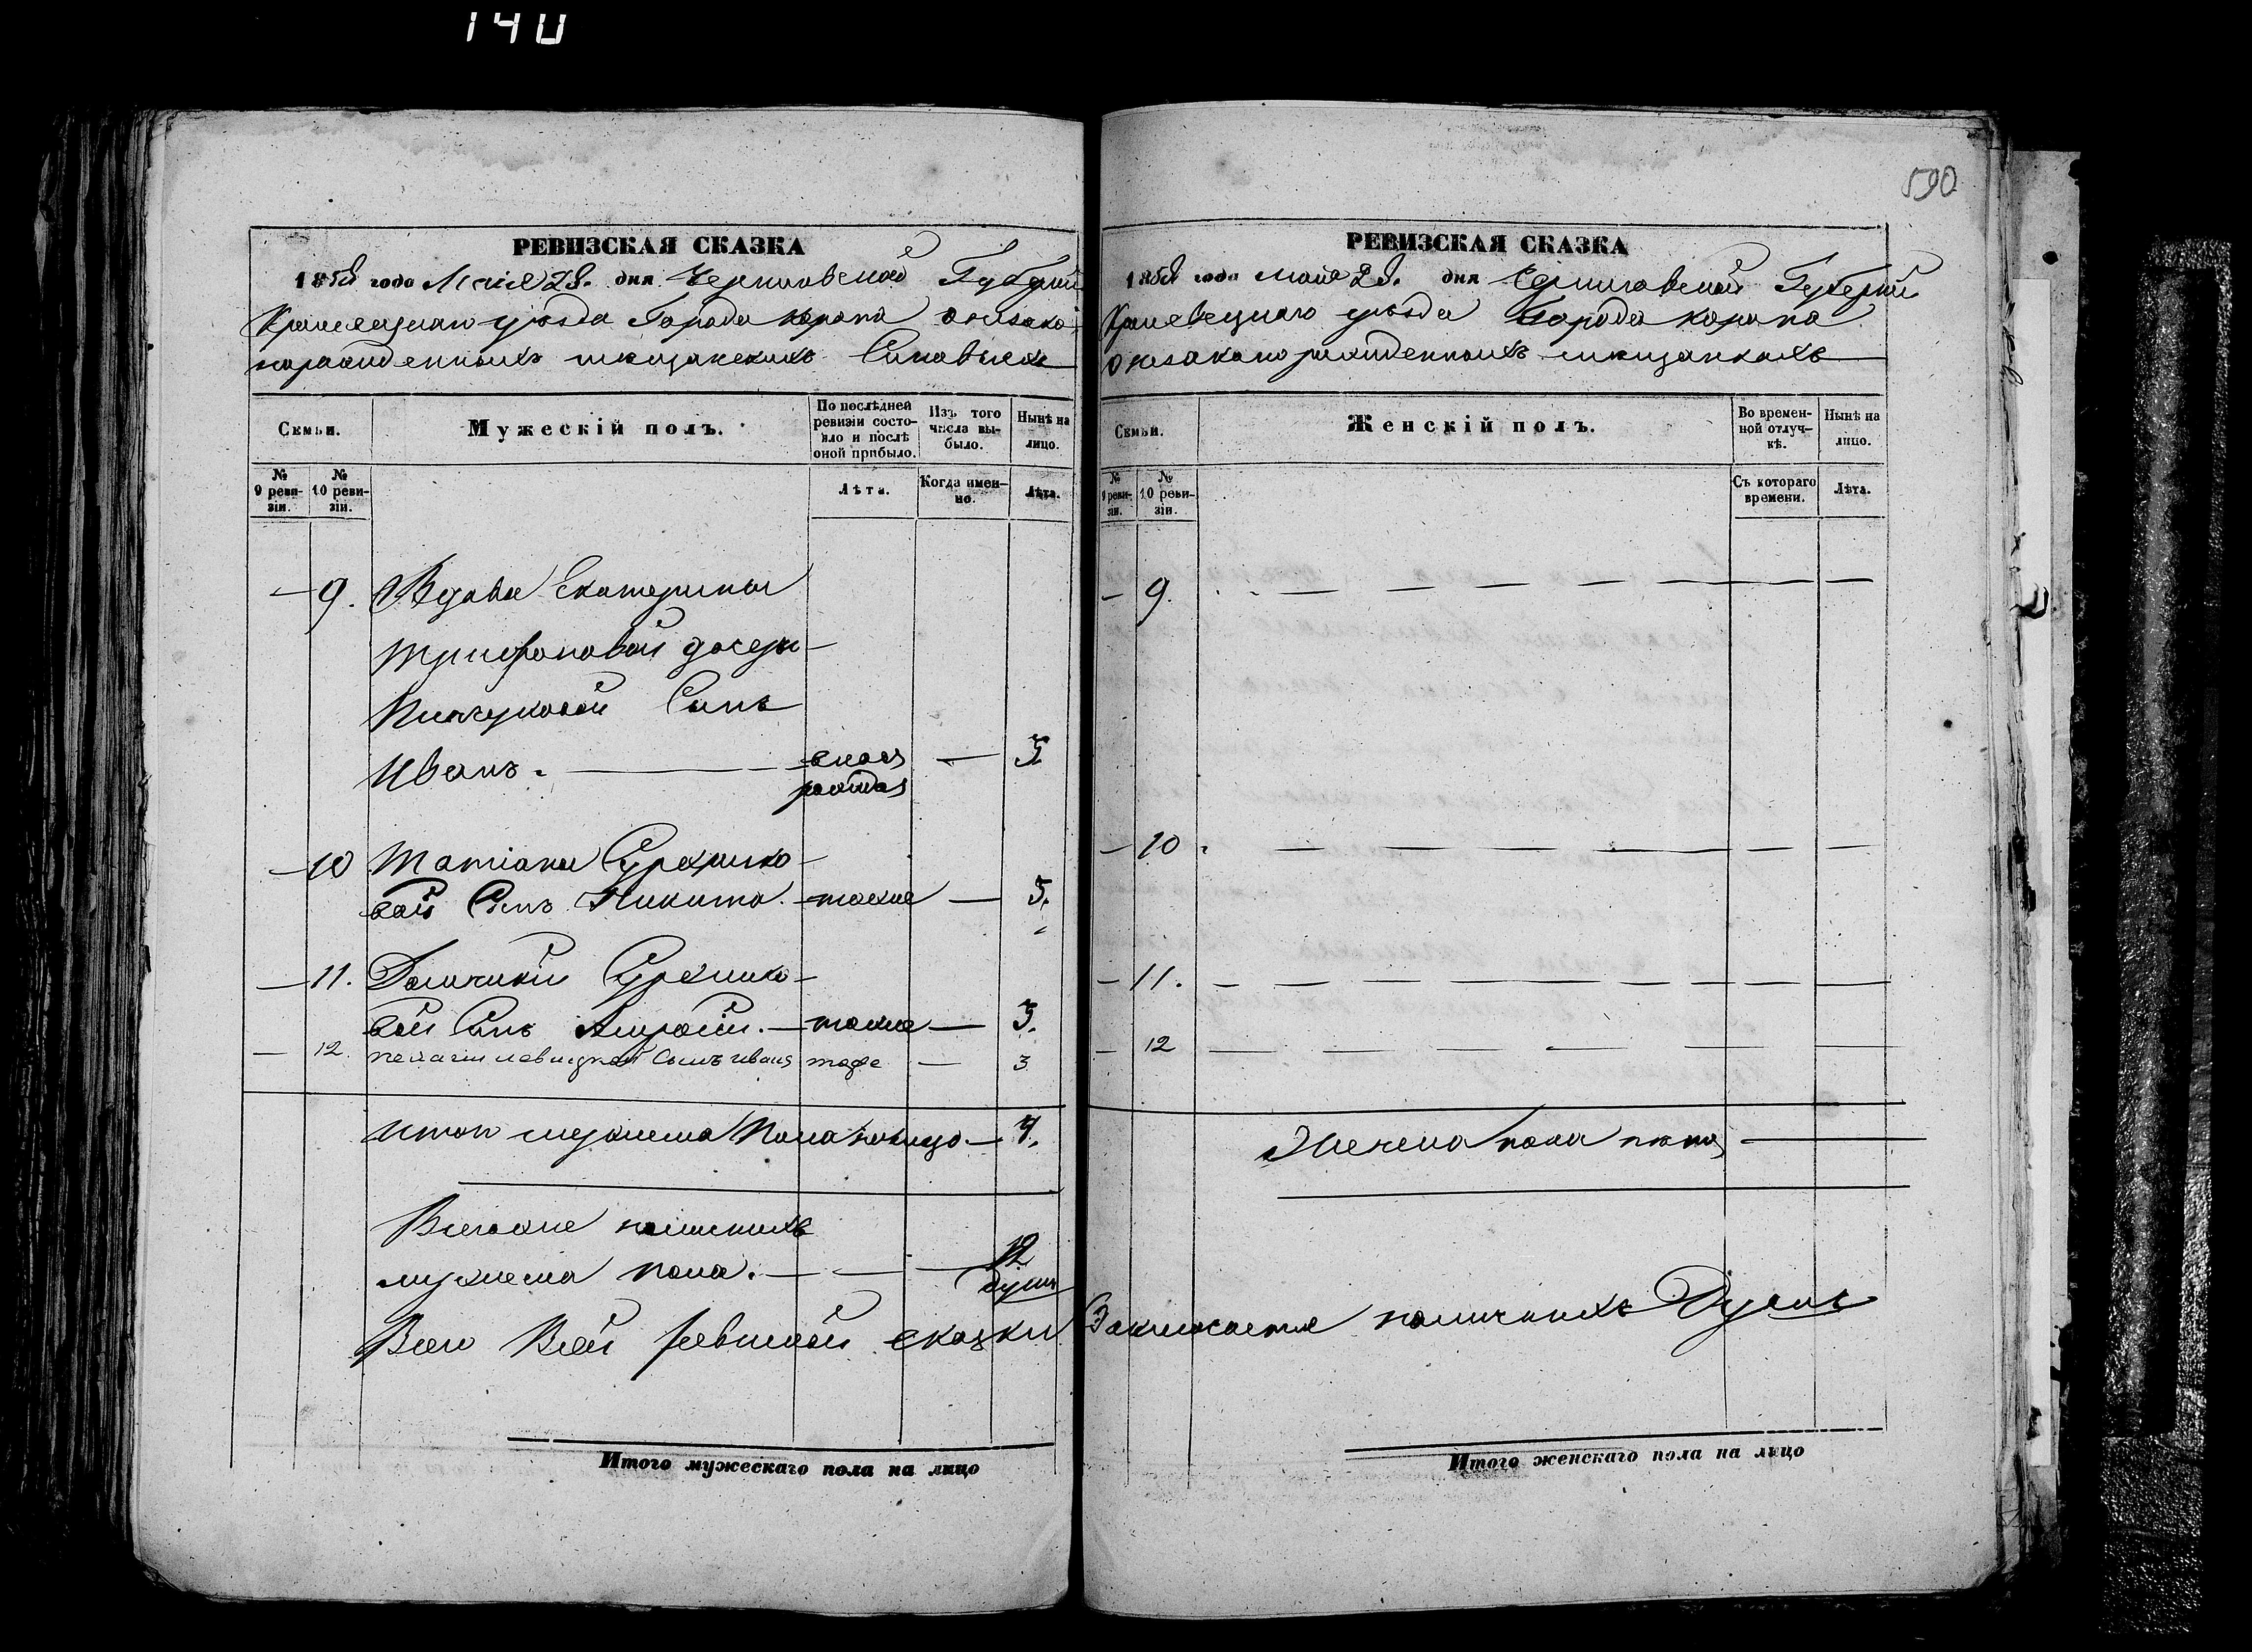 140
590
РЕВИЗСКАЯ СКАЗКА
1858 года Маія 28. дня Черниговской Губерніи
Кролевецкаго уезда Города Коропа о незако
норожденныхъ мещанскихъ Сыновьяхъ
Семьи.
Мужескій полъ.
По послѣдней ревизіи состояло и послѣ оной прибыло.
Изъ того числа выбыло.
Нынѣ на лицо.
№ 9 ревизіи.
№ 10 ревизіи.
Лѣта.
Когда именно.
Лѣта.
— 9. Вдовы Екатерины
Трифоновой дочери
Сынъ
Иванъ. — 5
— 10 Татіаны
вой Сынъ Никита. — тоже — 5.
— 11.
вой Сынъ — тоже — 3.
— 12. Пелагіи Левицкой Сынъ Иванъ тоже — 3
Итого мужеска Пола налицо. — 4.
Всегоже наличныхъ
мужеска пола. — — — 12
душъ
Всего Всей ревизкой сказки
Итого мужескаго пола на лицо
РЕВИЗСКАЯ СКАЗКА
1858 года мая 28. дня Черниговской Губерніи
Кролевецкаго уезда Города Коропа
о незаконорожденныхъ мещанкахъ
Семьи.
Женскій полъ.
Во временной отлучкѣ.
Нынѣ на лицо.
№ 9 ревизіи.
№ 10 ревизіи.
Съ котораго времени.
Лѣта.
— 9. — — — —
— 10 — — — —
— 11. — — — —
— 12 — — — —
Женска пола нетъ —
Заключается наличныхъ Душъ
Итого женскаго пола на лицо